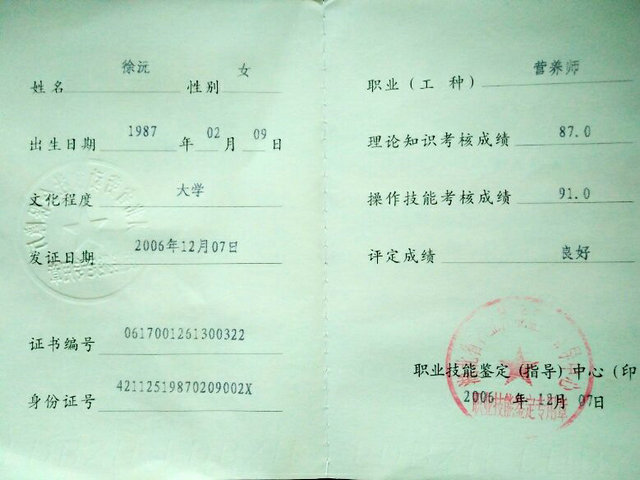 姓名 徐沅 性别 女
出生日期 1987 年 02 月 09 日
文化程度 大学
发证日期 2006年12月07日
证书编号 0617001261300322
身份证号 42112519870209002X
职业（工 种） 营养师
理论知识考核成绩 87.0
操作技能考核成绩 91.0
评定成绩 良好
职业技能鉴定（指导）中心（印
2006 年 12月 07日
职业技能鉴定专用章